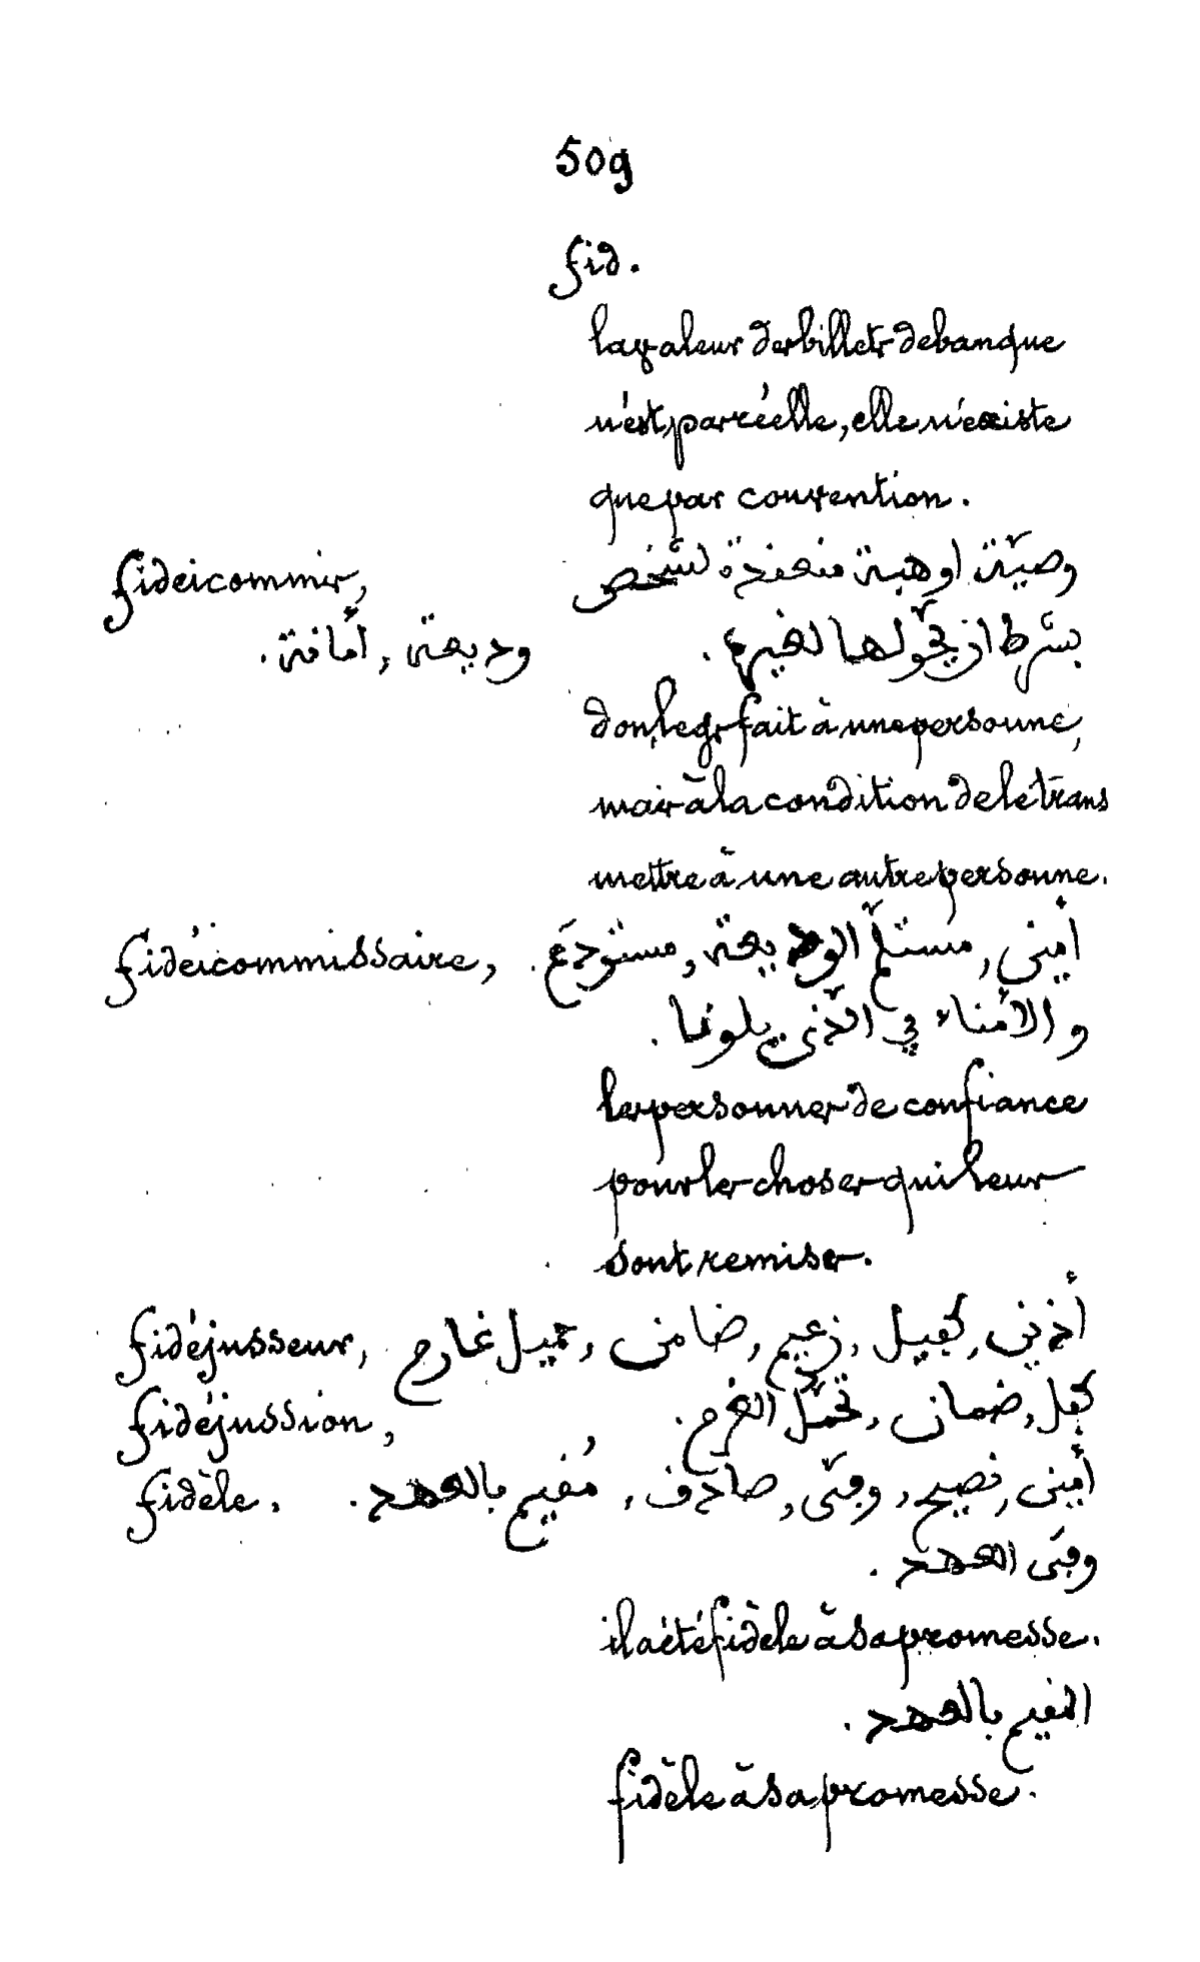 509
fid.
la valeur des billets de banque
n'est pas réelle, elle n'existe
que par convention.
fideicommis, وصيّة او هبة منعقدة لشخص
بشرط ان يحوّلها لغيره. وديعة, أمانة.
don, legs fait à une personne,
mais à la condition de le trans
mettre à une autre personne.
fidéicommissaire, أمين, مستلّم الوديعة, مستودَع.
والأمناء في الّذي يلونها.
les personnes de confiance
pour les choses qui leur
sont remises.
fidéjusseur, أذين, كفيل, زعيم, ضامن, حميل غارم
fidéjussion, كفل, ضمان, تحمّل الغرم.
fidèle. أمين, نصيح, وفيّ, صادق, مُقيم بالعهد.
وفيّ العهد.
il a été fidèle à sa promesse.
المقيم بالعهد.
fidèle à sa promesse.